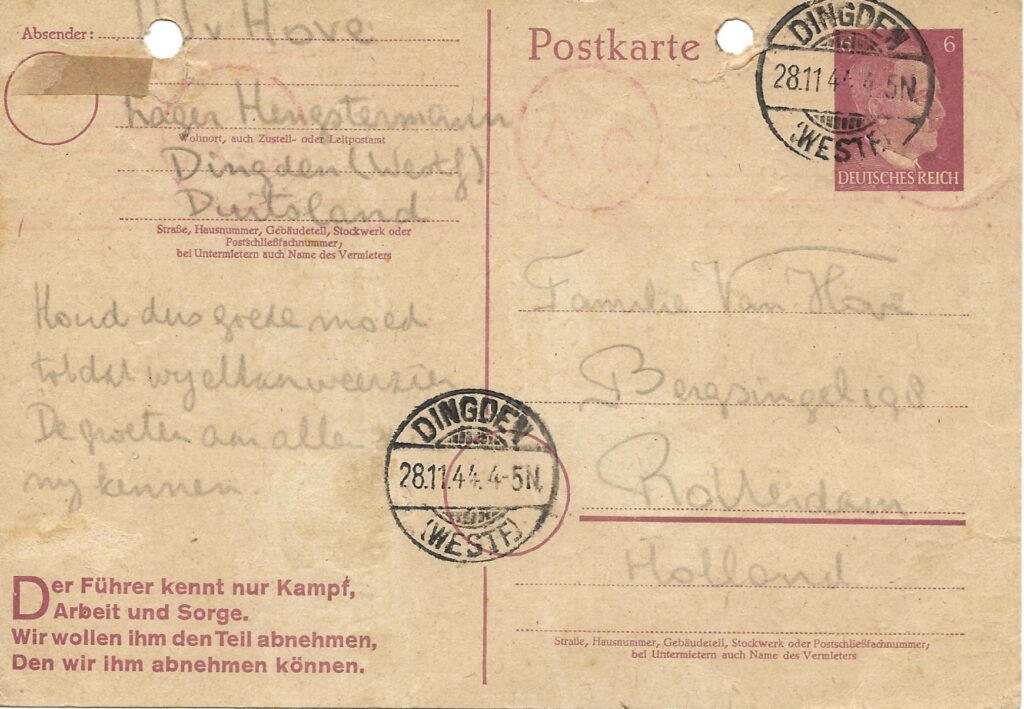 Absender: v Hove
Lager Hengstermann
Wohnort, auch Zustell- oder Leitpostamt
Dingden (Westf)
Duitsland
Straße, Hausnummer, Gebäudeteil, Stockwerk oder
Postschließfachnummer;
bei Untermietern auch Name des Vermieters
Houd dus goede moed
tot dat wy elkan weerzien
De groeten aan allen
my kennen.
Der Führer kennt nur Kampf,
Arbeit und Sorge.
Wir wollen ihm den Teil abnehmen,
Den wir ihm abnehmen können.
DINGDEN
28.11.44.4-5N.
(WESTF)
Postkarte
6
DEUTSCHES REICH
DINGDEN
28.11.44.4-5N.
(WESTF)
Familie Van Hove
Bergsingel 198
Rotterdam
Holland
Straße, Hausnummer, Gebäudeteil, Stockwerk oder Postschließfachnummer;
bei Untermietern auch Name des Vermieters